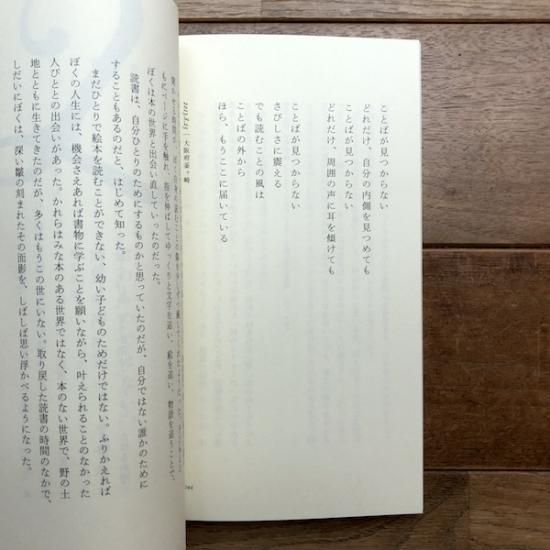 ことばが見つからない
どれだけ、自分の内側を見つめても
ことばが見つからない
どれだけ、周囲の声に耳を傾けても
ことばが見つからない
さびしさに震える
でも読むことの風は
ことばの外から
ほら、もうここに届いている
大阪府釜ヶ崎
もにページに手を触れ、指を伸ばしてゆっくりと文字を追い、絵を追い、物語を追うことで、
ぼくは本の世界と出会い直していったのだった。
読書は、自分ひとりのためにするものかと思っていたのだが、自分ではない誰かのために
することもあるのだと、はじめて知った。
まだひとりで絵本を読むことができない、幼い子どものためだけではない。ふりかえれば
ぼくの人生には、機会さえあれば書物に学ぶことを願いながら、叶えられることのなかった
人びととの出会いがあった。かれらはみな本のある世界ではなく、本のない世界で、野の土
地とともに生きてきたのだが、多くはもうこの世にいない。取り戻した読書の時間のなかで、
しだいにぼくは、深い皺の刻まれたその面影を、しばしば思い浮かべるようになった。